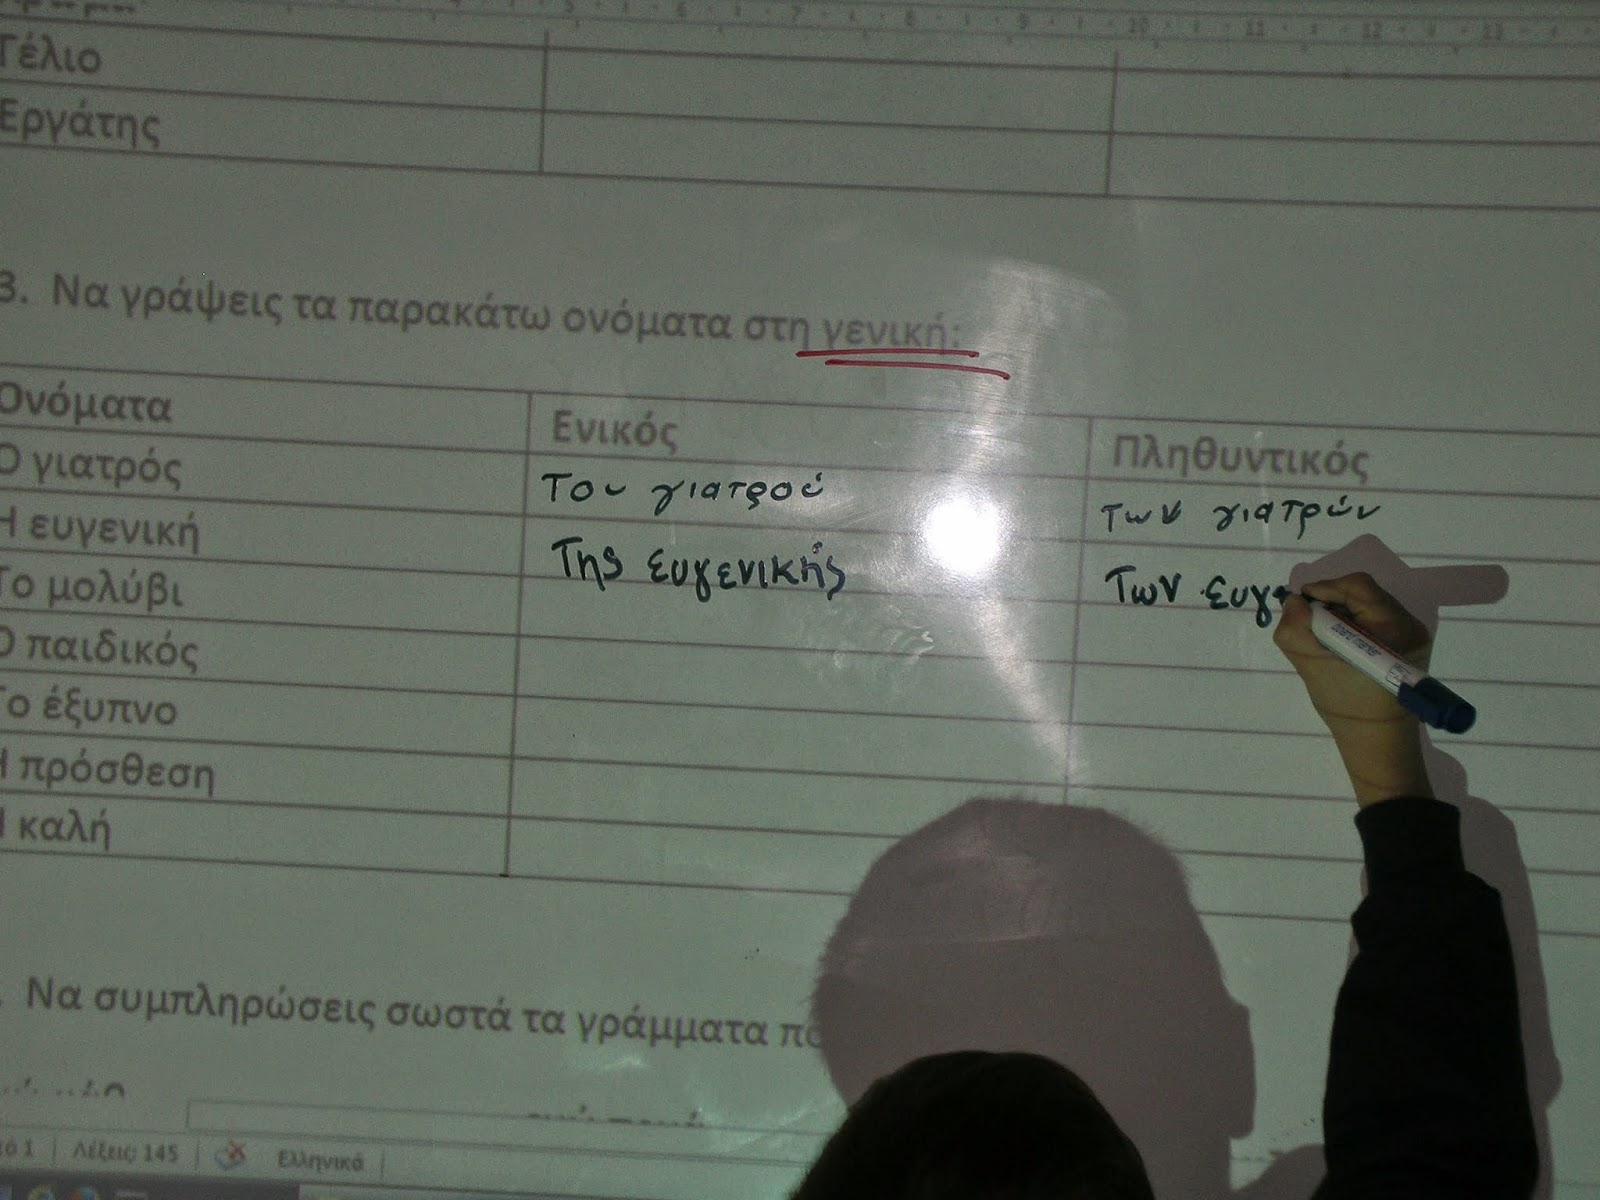 5 6 7 8 9 10 11 12 13
Γέλιο
Εργάτης
3. Να γράψεις τα παρακάτω ονόματα στη γενική:
Ονόματα Ενικός Πληθυντικός
Ο γιατρός Του γιατρού των γιατρών
Η ευγενική Της ευγενικής Των ευγ
Το μολύβι
Ο παιδικός
Το έξυπνο
Η πρόσθεση
Η καλή
Να συμπληρώσεις σωστά τα γράμματα πο
Λέξεις: 145 Ελληνικά
board marker